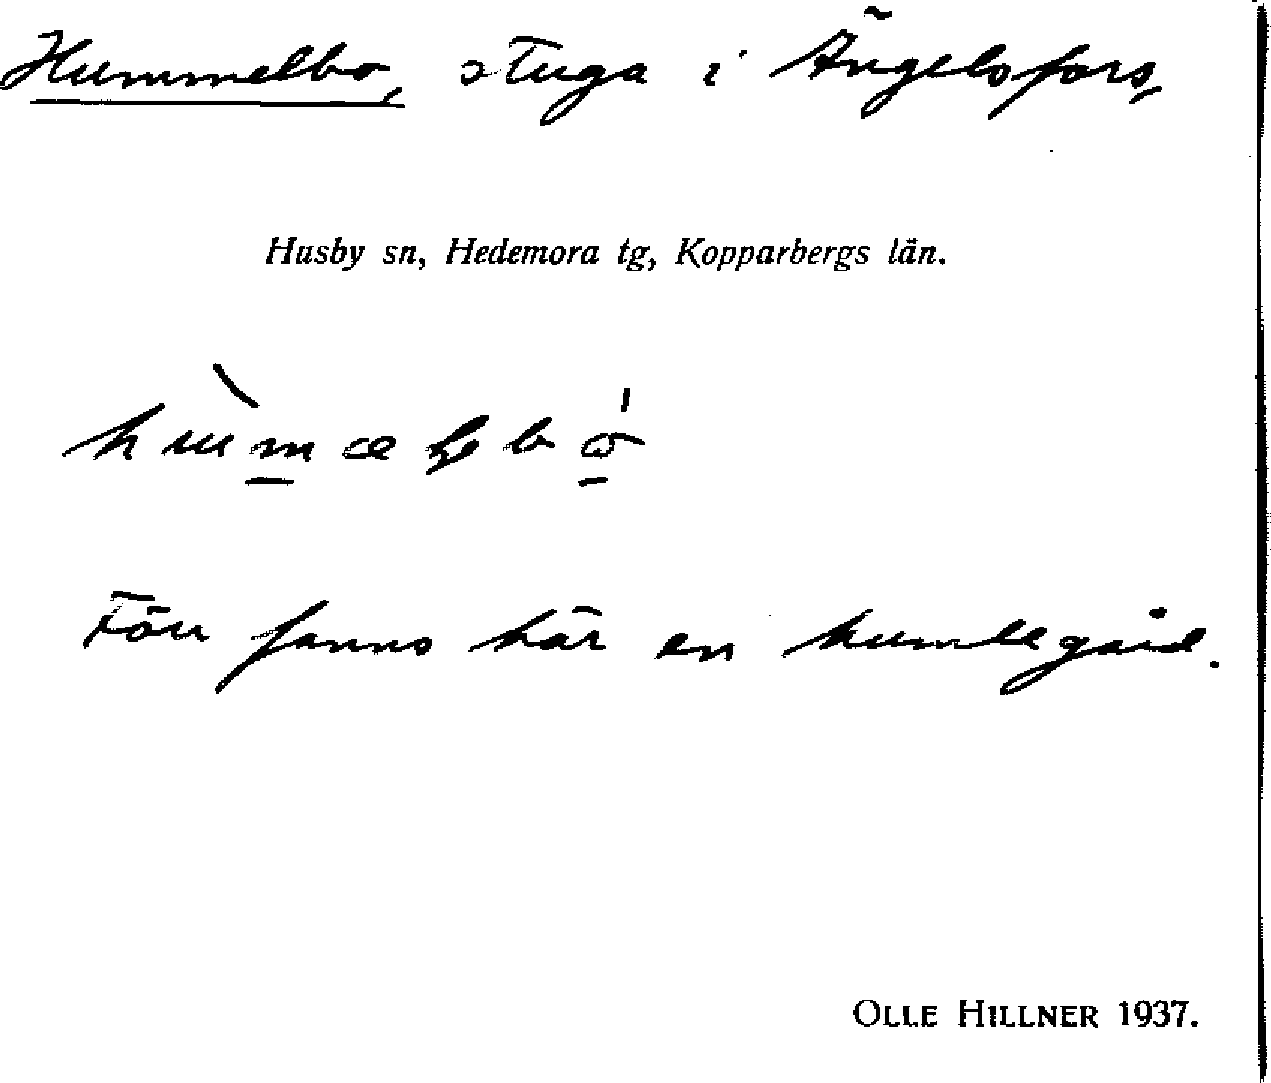 Hummelbo, stuga i Ängelsfors,
Husby sn, Hedemora tg, Kopparbergs län.
Förr fanns här en humlegård.
OLLE HILLNER 1937.